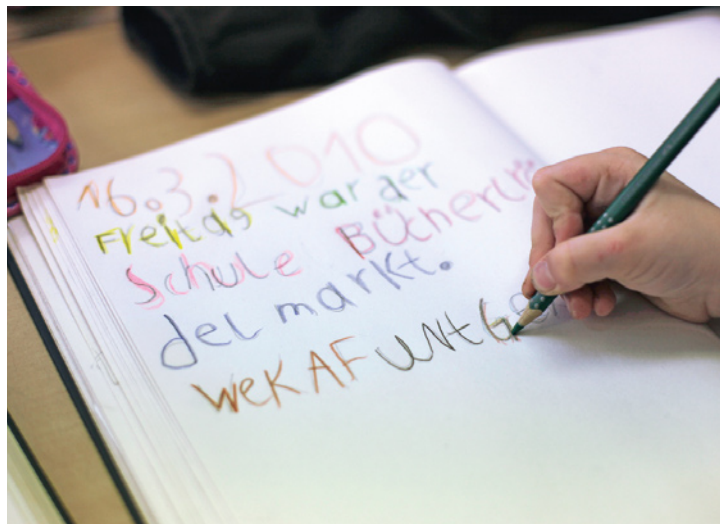 16.3.2010
Freitag war der
Schule Büchertrö
del markt.
weKAF UNt